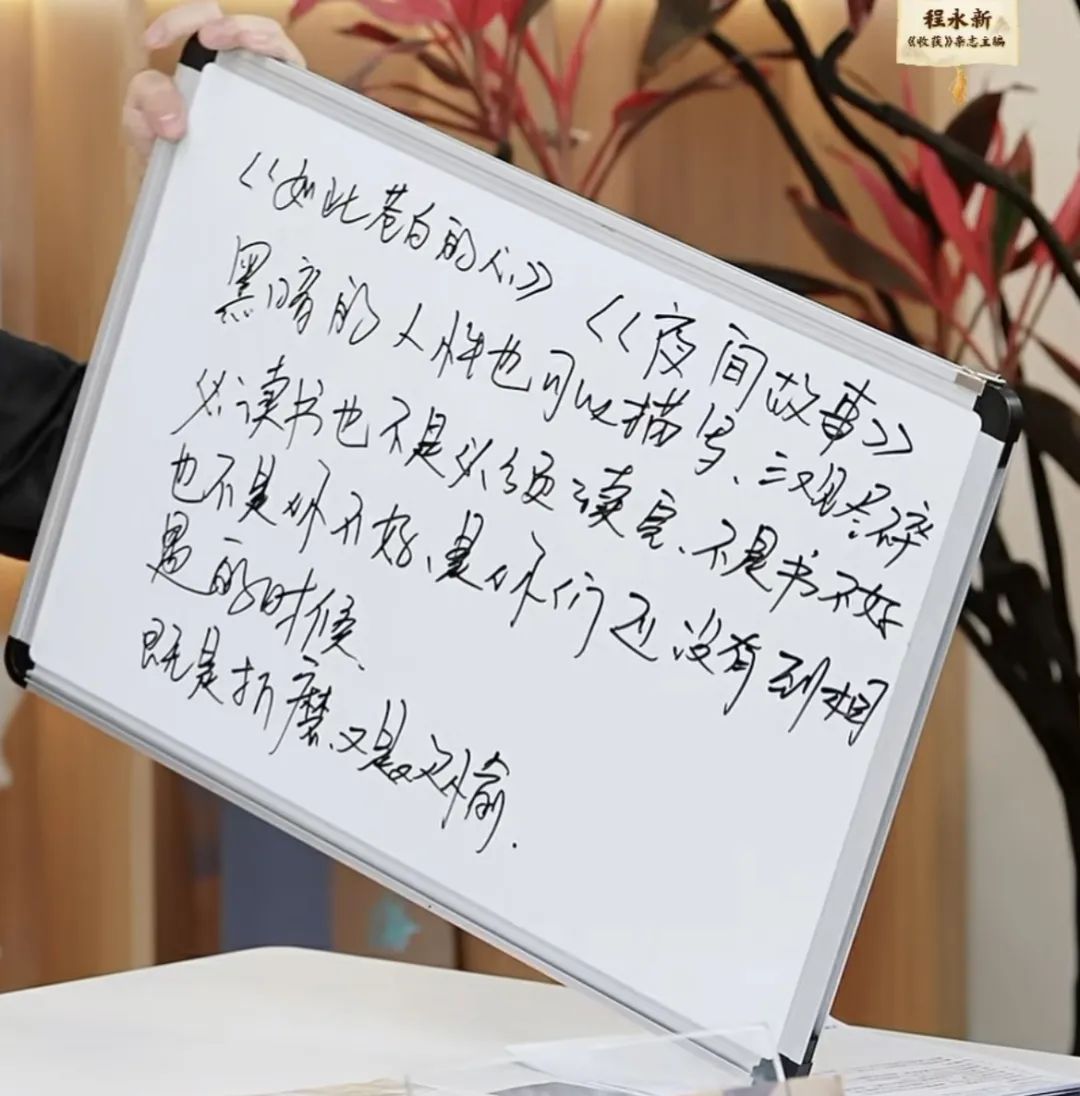 程永新
《收获》杂志主编
《如此苍白的心》《夜间故事》
黑暗的人性也可以描写、三观尽碎
必读书也不是必须读完、不是书不好
也不是你不好、是你们还没有到相
遇的时候、
既是折磨、又是欢愉.